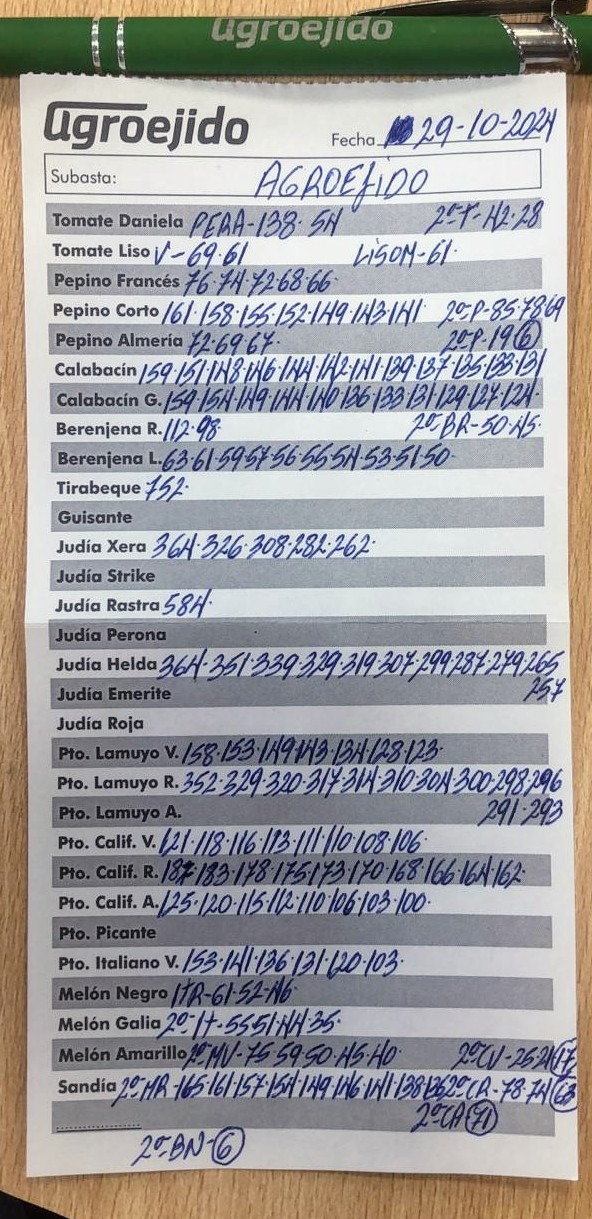 agroejido
agroejido
Fecha 29-10-2024
Subasta: AGROEJIDO
Tomate Daniela PERA-138·54 2ª-T-42·28
Tomate Liso V-69·61 LISOM-61·
Pepino Francés 76·74·72·68·66·
Pepino Corto 161·158·155·152·149·143·141 2ª-P-85·78·69
Pepino Almería 72·69·67· 2ª-P-19 6
Calabacín 159·151·148·146·144·142·141·139·137·135·133·131
Calabacín G. 159·154·149·144·140·136·133·131·129·127·124·
Berenjena R. 112·98· 2ª-BR-50·45·
Berenjena L. 63·61·59·57·56·55·54·53·51·50·
Tirabeque 752·
Guisante
Judía Xera 364·326·308·282·262·
Judía Strike
Judía Rastra 584·
Judía Perona
Judía Helda 364·351·339·329·319·307·299·287·279·265
Judía Emerite 257
Judía Roja
Pto. Lamuyo V. 158·153·149·143·134·128·123·
Pto. Lamuyo R. 352·329·320·317·314·310·304·300·298·296
Pto. Lamuyo A. 291·293
Pto. Calif. V. 121·118·116·113·111·110·108·106·
Pto. Calif. R. 187·183·178·175·173·170·168·166·164·162·
Pto. Calif. A. 125·120·115·112·110·106·103·100·
Pto. Picante
Pto. Italiano V. 153·141·136·131·120·103·
Melón Negro ITR-61·52·46·
Melón Galia 2ª-It-55·51·44·35·
Melón Amarillo 2ª-MV-75·59·50·45·40· 2ª-CV-25·21 17
Sandía 2ª-MR-165·161·157·154·149·146·141·138·136 2ª-CR-78·74 68
2ª-CA 71
2ª-BN-6